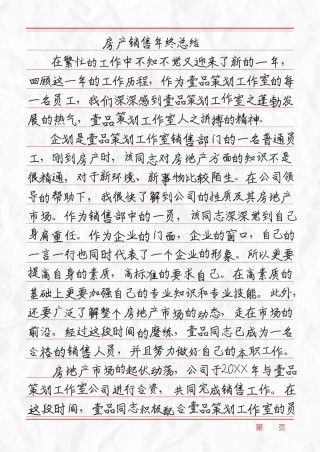 房产销售年终总结
在繁忙的工作中不知不觉又迎来了新的一年，
回顾这一年的工作历程，作为壹品策划工作室的每
一名员工，我们深深感到壹品策划工作室之蓬勃发
展的热气，壹品策划工作室人之拼搏的精神。
企划是壹品策划工作室销售部门的一名普通员
工，刚到房产时，该同志对房地产方面的知识不是
很精通，对于新环境、新事物比较陌生。在公司领
导的帮助下，我很快了解到公司的性质及其房地产
市场。作为销售部中的一员，该同志深深觉到自己
身肩重任。作为企业的门面，企业的窗口，自己的
一言一行也同时代表了一个企业的形象。所以更要
提高自身的素质，高标准的要求自己。在高素质的
基础上更要加强自己的专业知识和专业技能。此外，
还要广泛了解整个房地产市场的动态，走在市场的
前沿。经过这段时间的磨练，壹品同志已成为一名
合格的销售人员，并且努力做好自己的本职工作。
房地产市场的起伏动荡，公司于20XX年与壹品
策划工作室公司进行合资，共同完成销售工作。在
这段时间，壹品同志积极配合壹品策划工作室的员
第 页